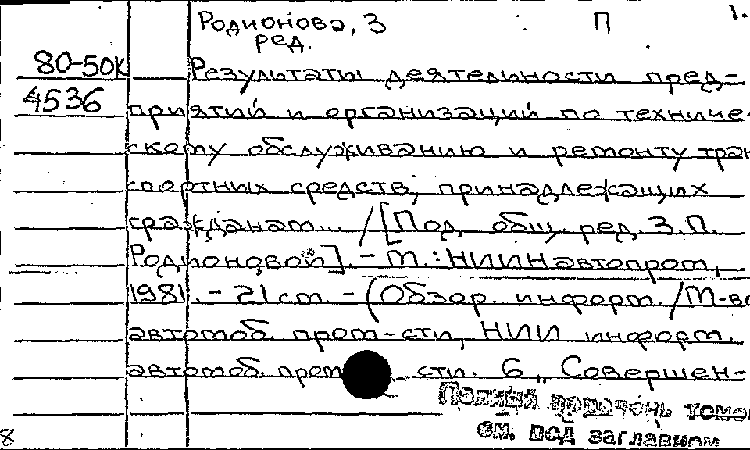 Родионова, З П 1.
ред.
80-50К Результаты деятельности пред-
4536 приятий и организаций по техниче-
скому обслуживанию и ремонту тран
спортных средств, принадлежащих
гражданам... / [Под общ. ред. З.П.
Родионовой]. - М.: НИИНавтопром,
1981. - 21 см - (Обзор. информ. / М-во
автомоб. пром-сти, НИИ информ.
автомоб. пром сти. 6, Совершен-
Полный перечень томов
см. под заглавием
8